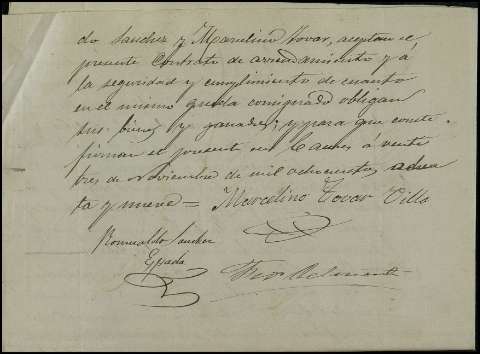 do Sanchez y Marcelino Tovar, aceptan el
presente Contrato de arrendamiento y á
la seguridad y cumplimiento de cuanto
en el mismo queda consignado obligan
sus bienes y ganados, y para que conste
firman el presente en á veinte
tres de Noviembre de mil ochocientos
ta y nueve = Marcelino Tovar Villa
Romualdo Sanchez